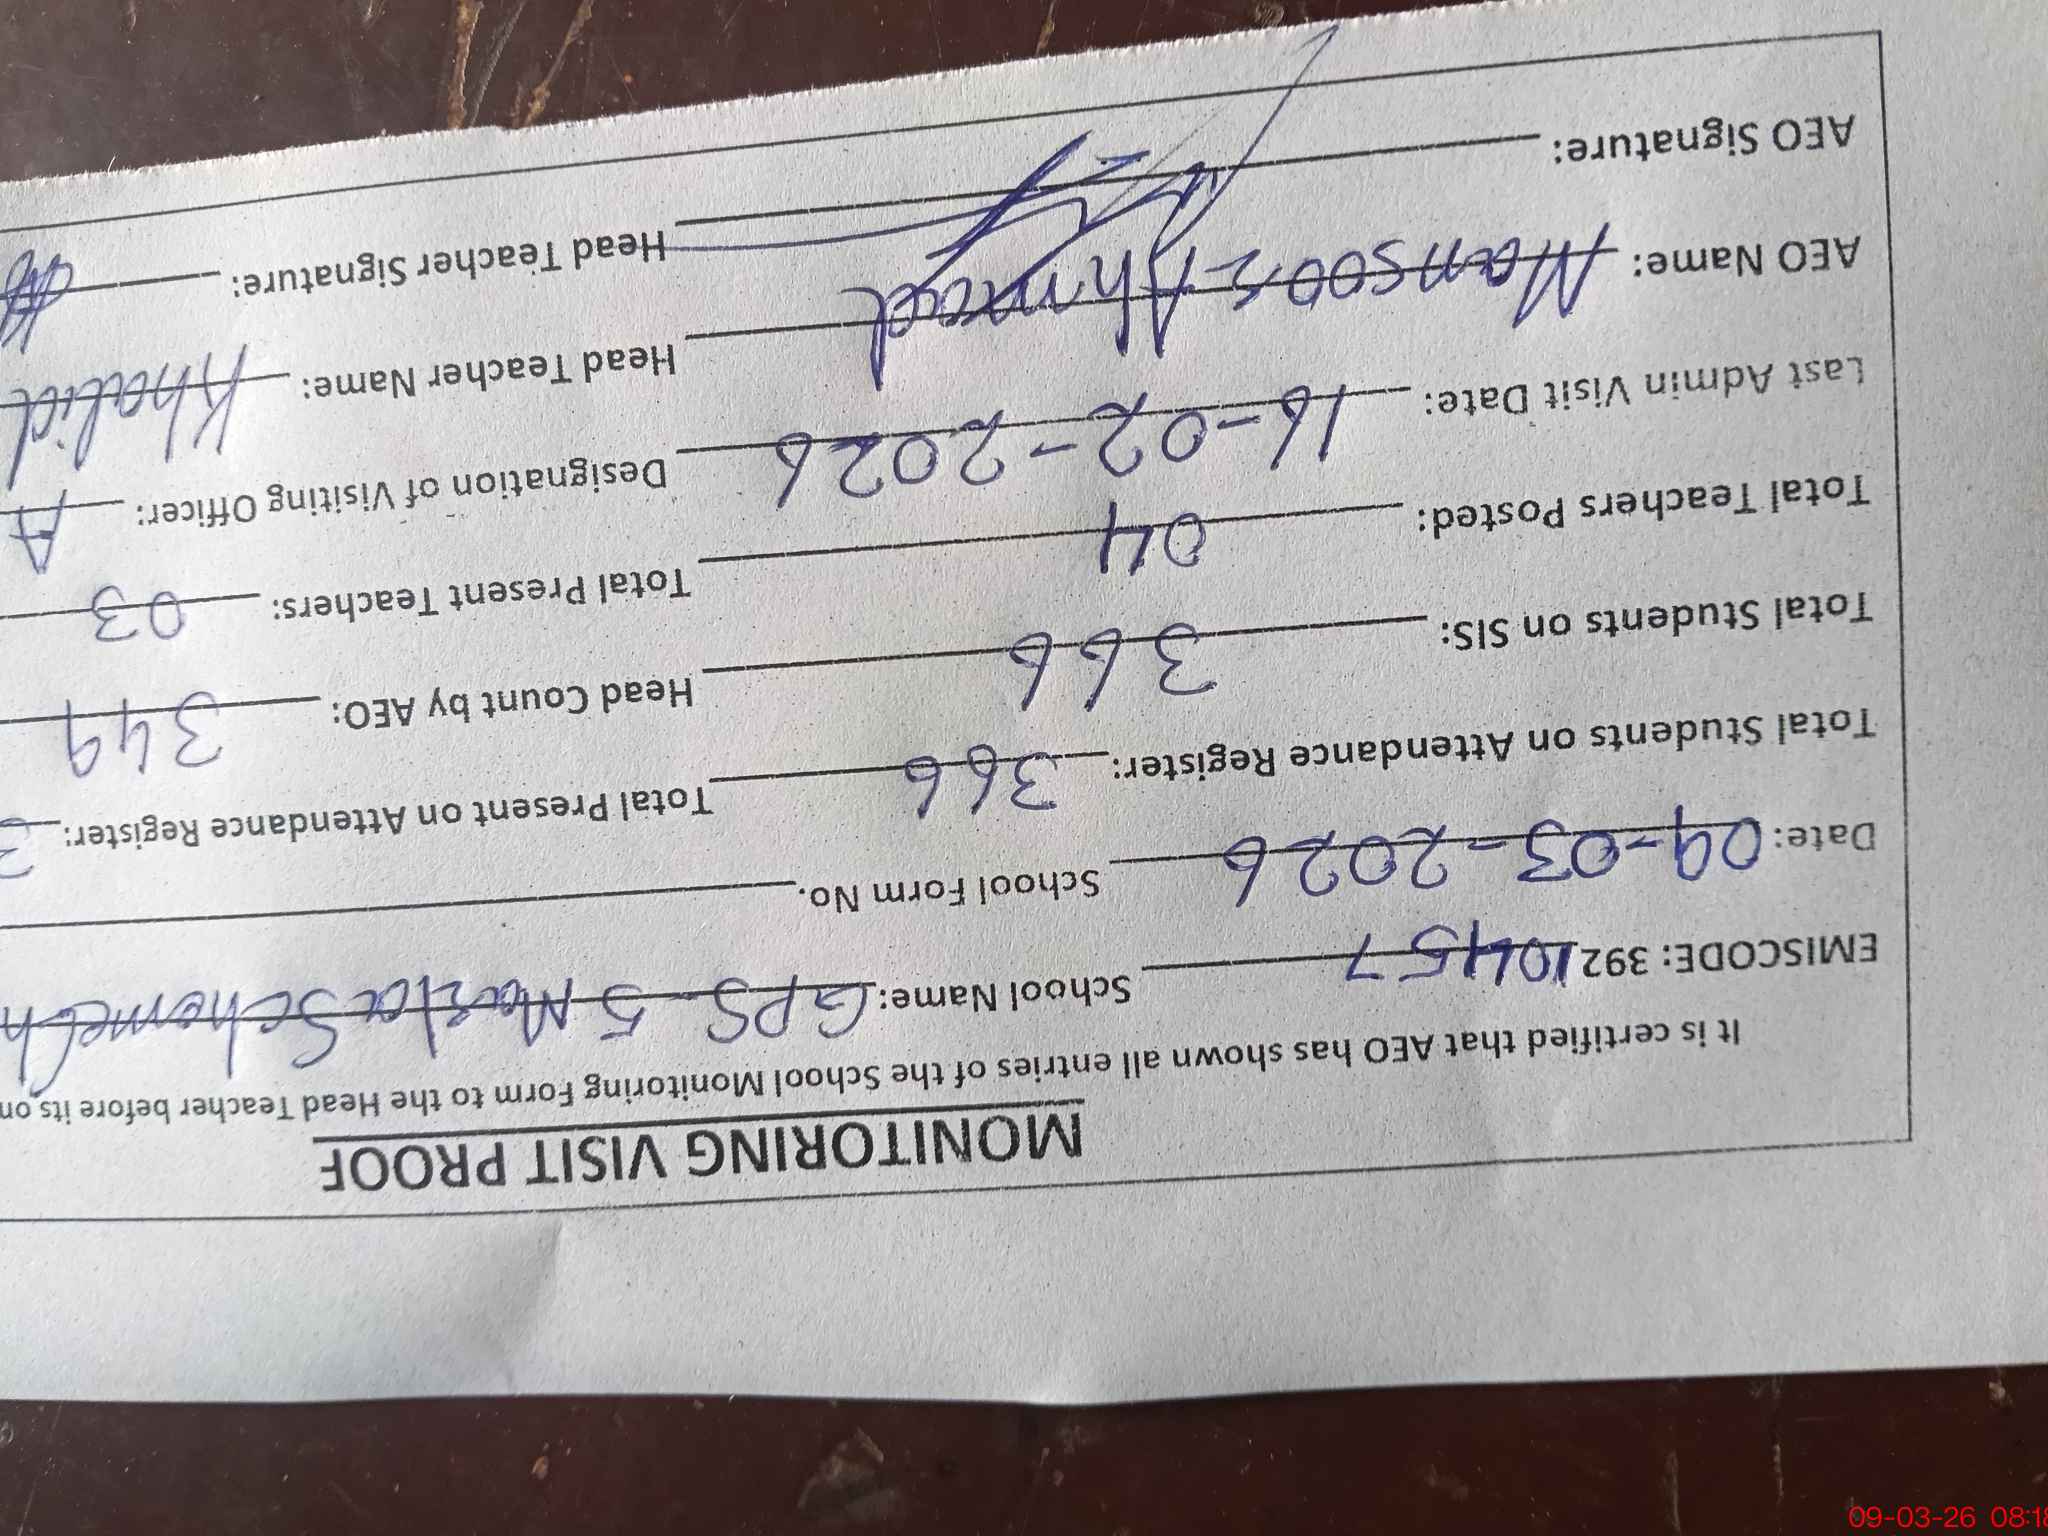 MONITORING VISIT PROOF
It is certified that AEO has shown all entries of the School Monitoring Form to the Head Teacher before its on
EMISCODE: 39210457 School Name: GPS 5 Marla Scheme Ch
Date: 09-03-2026 School Form No.
Total Students on Attendance Register: 366 Total Present on Attendance Register: 3
Total Students on SIS: 366 Head Count by AEO: 349
Total Teachers Posted: 04 Total Present Teachers: 03
Last Admin Visit Date: 16-02-2026 Designation of Visiting Officer: A
AEO Name: Mansoor Ahmad Head Teacher Name: Khalid
AEO Signature: Head Teacher Signature:
09-03-26 08:18